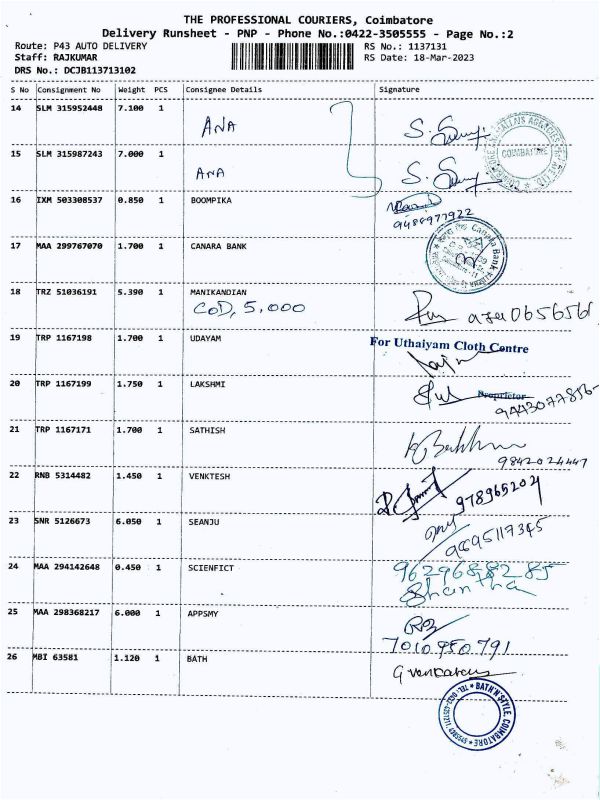 THE PROFESSIONAL COURIERS, Coimbatore
Delivery Runsheet - PNP - Phone No.:0422-3505555 - Page No.:2
Route: P43 AUTO DELIVERY
RS No.: 1137131
Staff: RAJKUMAR
RS Date: 18-Mar-2023
DRS No.: DCJB113713102
S No Consignment No Weight PCS Consignee Details Signature
14 SLM 315952448 7.100 1
ANA
COIMBATORE
15 SLM 315987243 7.000 1
ANA
16 IXM 503308537 0.850 1 BOOMPIKA
9486977922
17 MAA 299767070 1.700 1 CANARA BANK
Canara Bank
18 TRZ 51036191 5.390 1 MANIKANDIAN
COD, 5,000
19 TRP 1167198 1.700 1 UDAYAM
For Uthaiyam Cloth Centre
20 TRP 1167199 1.750 1 LAKSHMI
Proprietor
9443077856
21 TRP 1167171 1.700 1 SATHISH
9842024447
22 RNB 5314482 1.450 1 VENKTESH
978965204
23 SNR 5126673 6.050 1 SEANJU
9895117345
24 MAA 294142648 0.450 1 SCIENFICT
9629688285
Shantha
25 MAA 298368217 6.000 1 APPSMY
7010950791
26 MBI 63581 1.120 1 BATH
BATH'N'STYLE, COIMBATORE